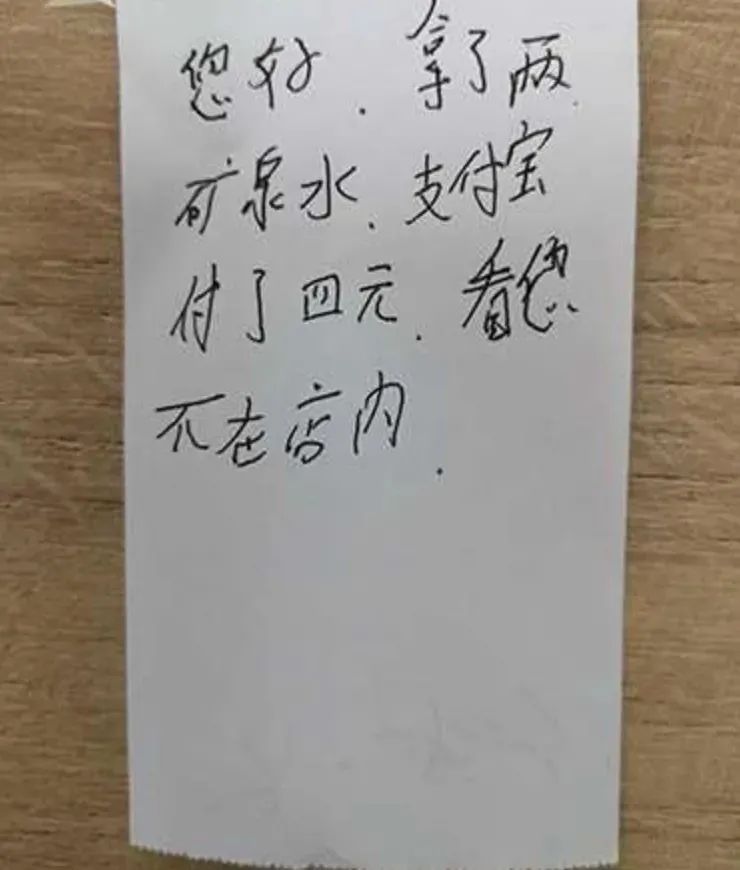 您好.拿了两
矿泉水.支付宝
付了四元.看您
不在店内.